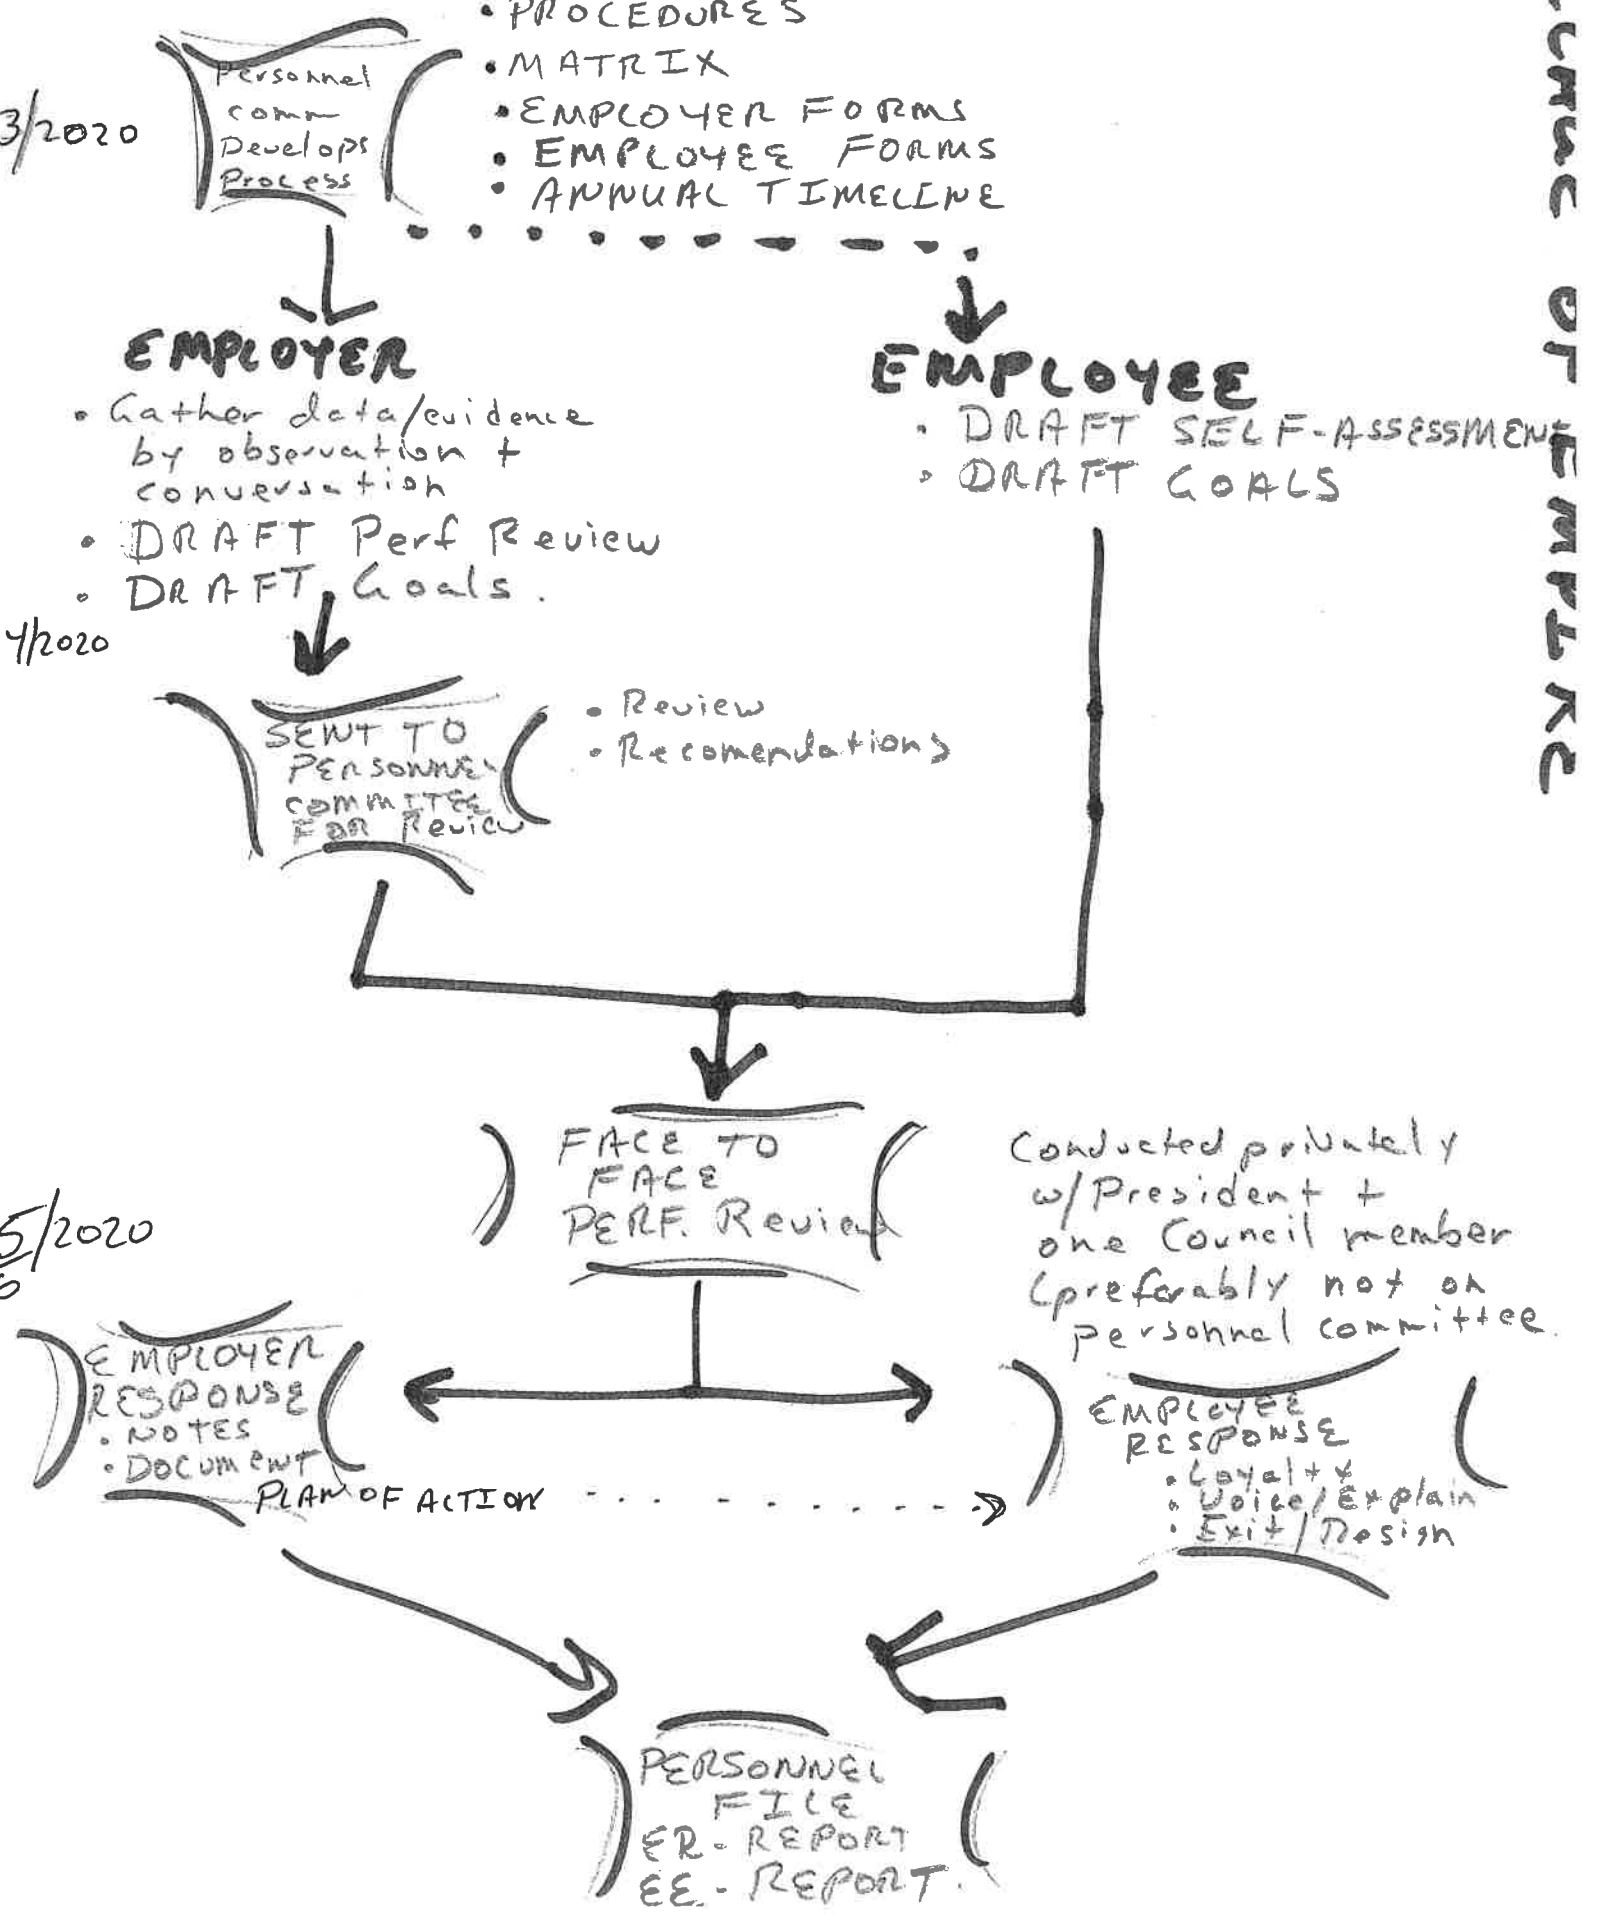 • PROCEDURES
• MATRIX
• EMPLOYER FORMS
• EMPLOYEE FORMS
• ANNUAL TIMELINE
3/2020
Personnel
comm
Develops
Process
EMPLOYER
• Gather data/evidence
by observation +
conversation
• DRAFT Perf Review
• DRAFT Goals.
EMPLOYEE
• DRAFT SELF-ASSESSMENT
• DRAFT GOALS
4/2020
SENT TO
PERSONNEL
COMMITTEE
FOR Review
• Review
• Recomendations
FACE TO
FACE
PERF. Review
Conducted privately
w/President +
one Council member
(preferably not on
personnel committee.
5/2020
EMPLOYER
RESPONSE
• NOTES
• DOCUMENT
PLAN OF ACTION
EMPLOYEE
RESPONSE
• Loyalty
• Voice/Explain
• Exit/Resign
PERSONNEL
FILE
ER - REPORT
EE - REPORT.
OF